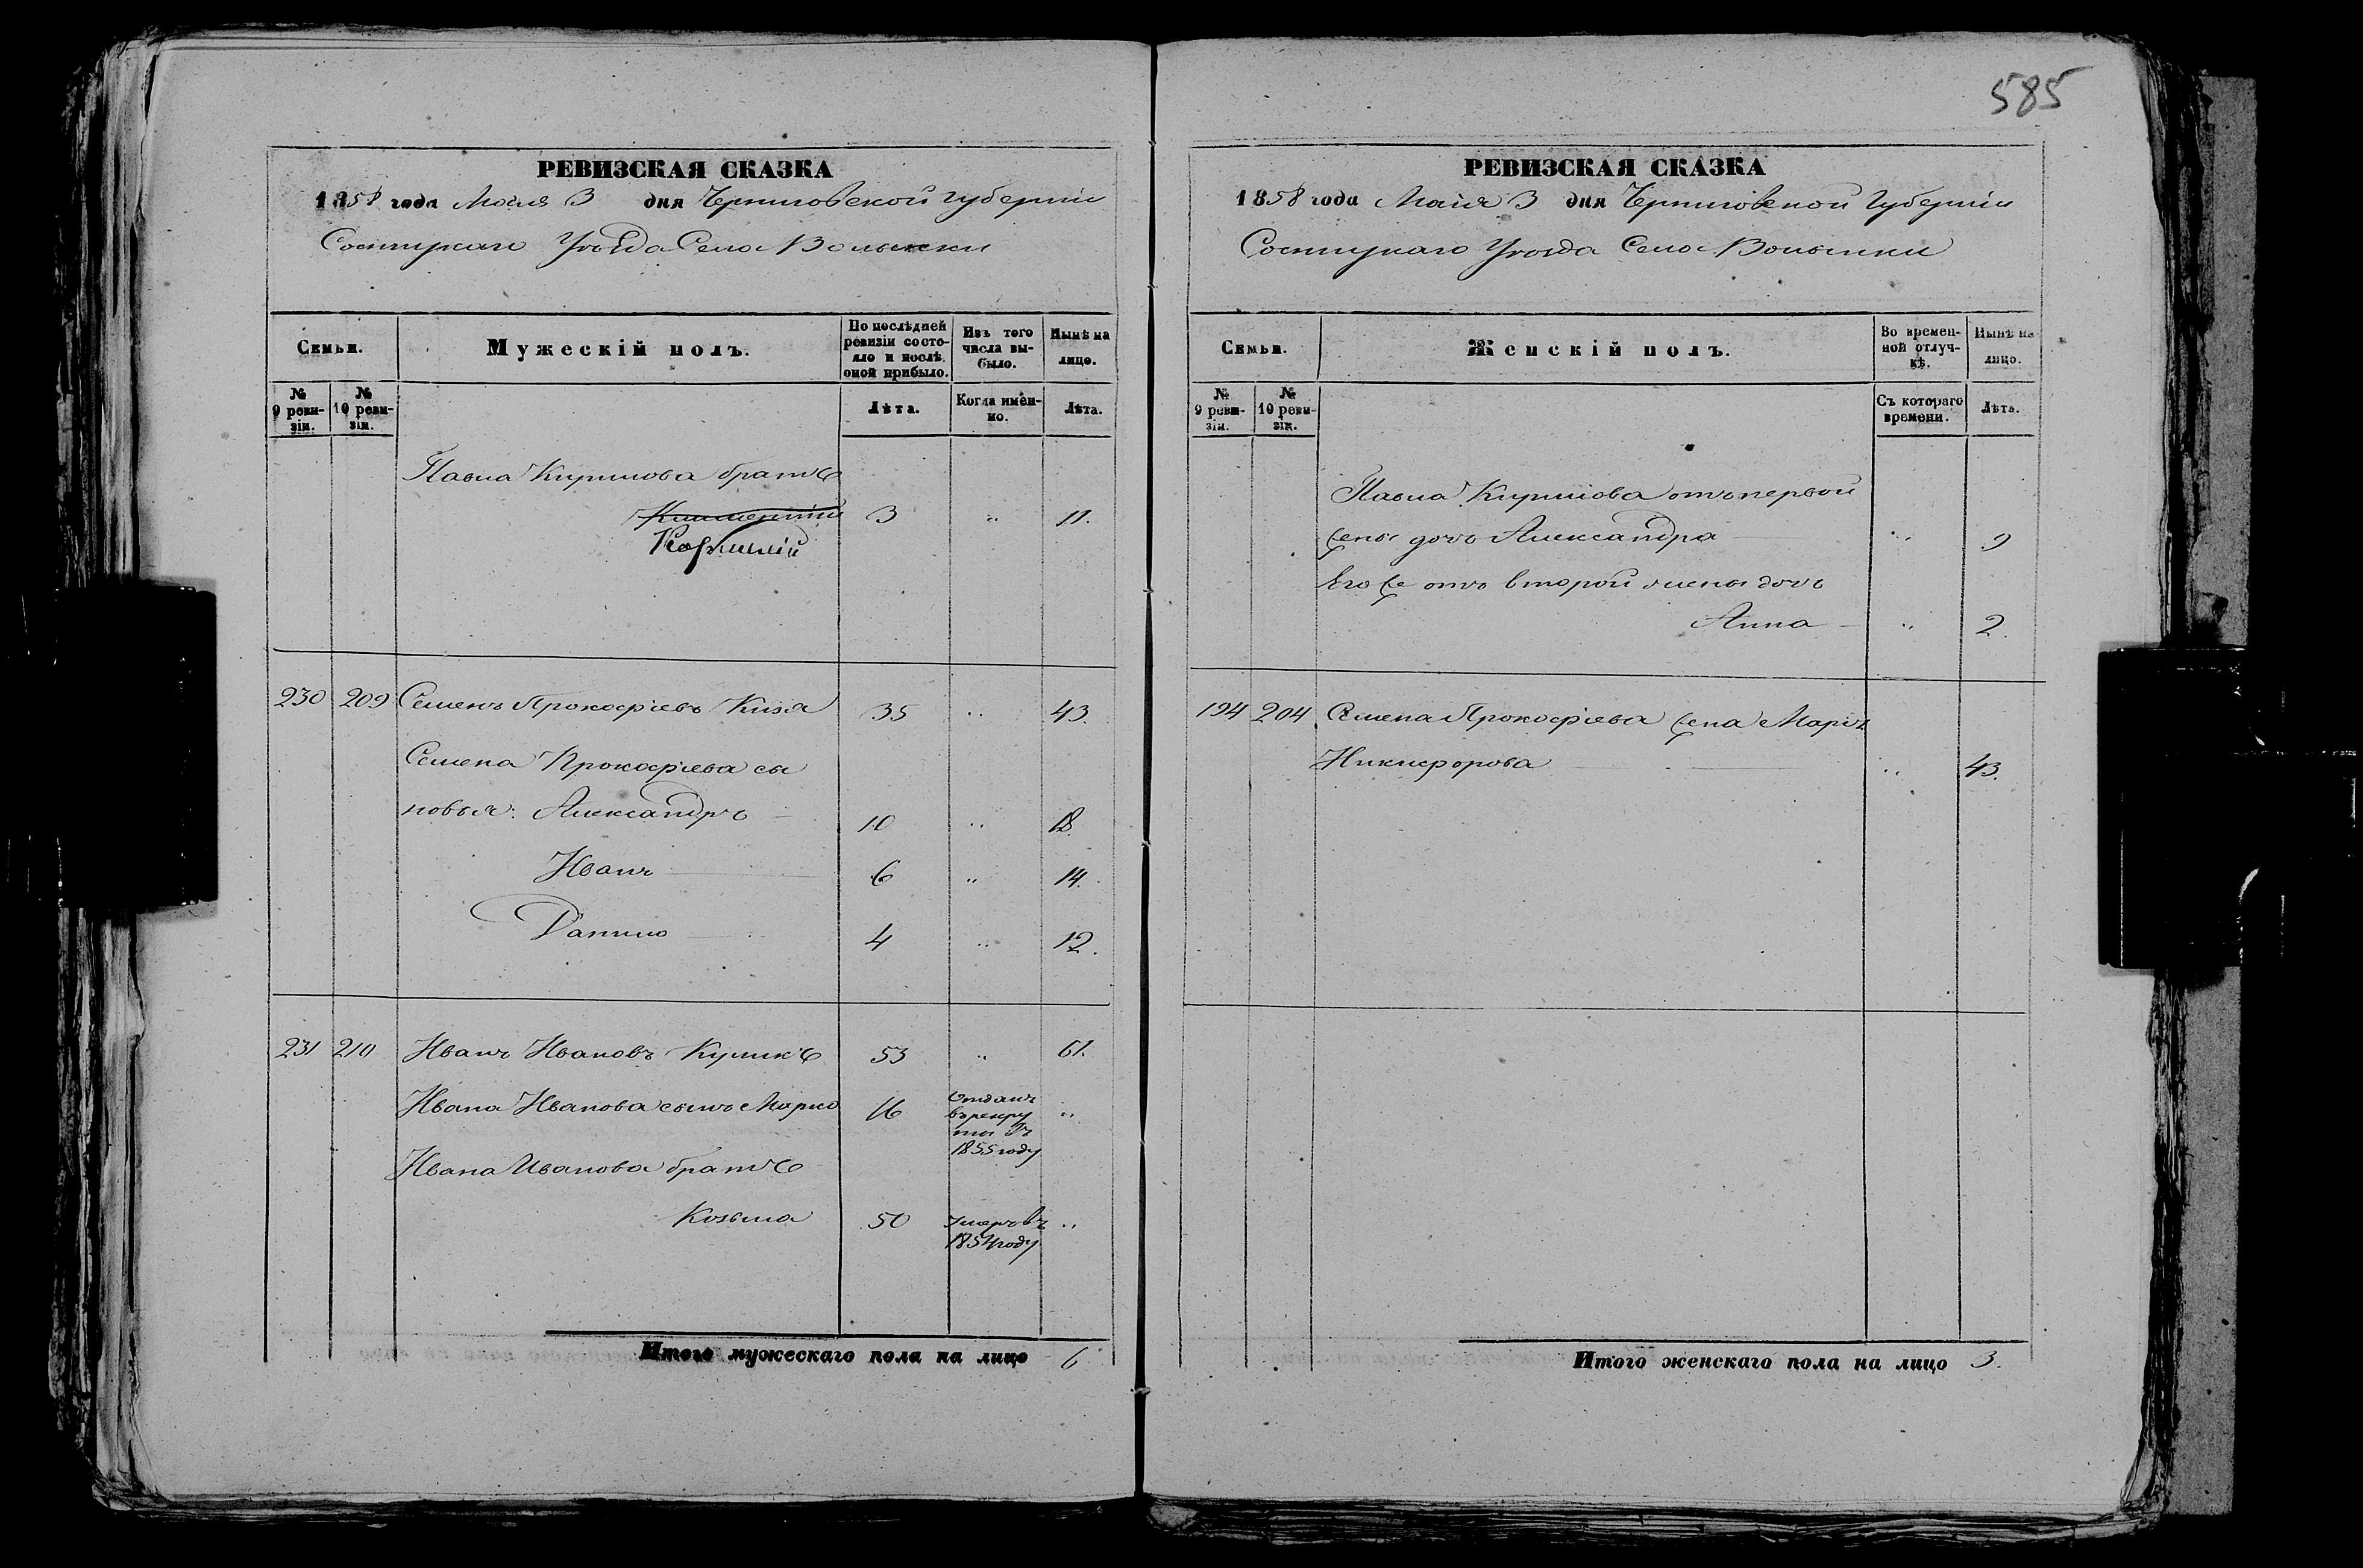 585
РЕВИЗСКАЯ СКАЗКА
1858 года Маія 3 дня Черниговской Губерніи
Сосницкаго Уѣзда Села Волынки
Семьи.
Мужескій полъ.
По послѣдней ревизіи состояло и послѣ оной прибыло.
Изъ того числа выбыло.
Нынѣ на лицо.
№ 9 ревизіи.
№ 10 ревизіи.
Лѣта.
Когда именно.
Лѣта.
Павла Кирилова братъ
Климентій 3 " 11.
Корнилій
230 209 Семенъ Прокофіевъ Кизя 35 " 43.
Семена Прокофіева сы
новья: Александръ 10 " 18.
Иванъ 6 " 14.
Данило 4 " 12.
231 210 Иванъ Ивановъ Куликъ 53 " 61.
Ивана Иванова сынъ Марко 16 Отданъ "
въ рекру
ты въ
1855 году
Ивана Иванова братъ
Козьма 50 Умеръ въ "
1854 году
Итого мужескаго пола на лицо 6
РЕВИЗСКАЯ СКАЗКА
1858 года Маія 3 дня Черниговской Губерніи
Сосницкаго Уѣзда Села Волынки
Семьи.
Женскій полъ.
Во временной отлучкѣ.
Нынѣ на лицо.
№ 9 ревизіи.
№ 10 ревизіи.
Съ котораго времени.
Лѣта.
Павла Кирилова отъ первой
жены дочь Александра " 9
Его же отъ второй жены дочь
Анна " 2.
194 204 Семена Прокофіева жена Марія
Никифорова " 43.
Итого женскаго пола на лицо 3.